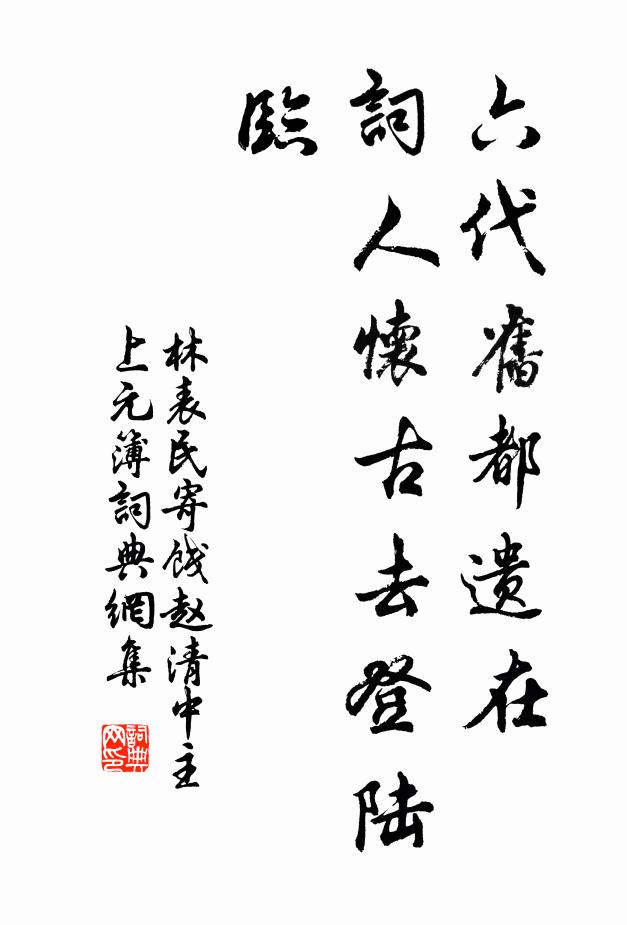 六代舊都遗在
詞人懷古去登陆
臨
林表民寄饯赵清中主
上元簿詞典網集
詞典
网印